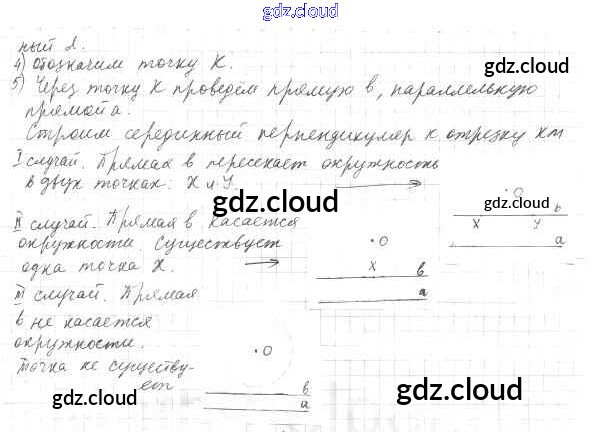 gdz.cloud
ный d.
4) Обозначим точку К.
gdz.cloud
5) Через точку К проведём прямую в, параллельную
прямой а.
Строим серединный перпендикуляр к отрезку КМ
I случай. Прямая в пересекает окружность
в двух точках: Х и У.
gdz.cloud
O
в
X У
а
II случай. Прямая в касается
окружности. Существует
одна точка Х.
gdz.cloud
O
X в
а
gdz.cloud
III случай. Прямая
в не касается
окружности.
Точка не существу-
ет
O
в
а
gdz.cloud
gdz.cloud